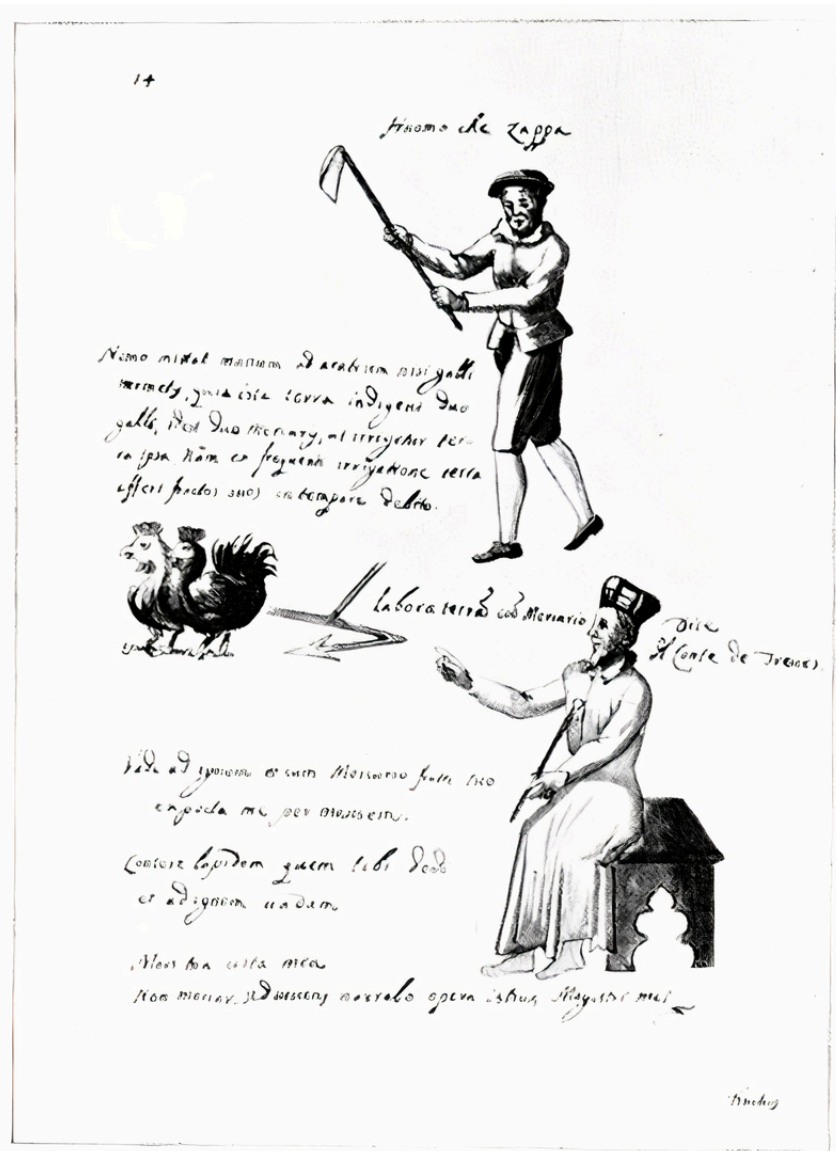 14
huomo che zappa
Nemo mittat manum ad aratrum nisi galli
quia ista terra indigent duo
galli, duo ut irrigetur ter-
ra ipsa. Nam ex frequenti irrigatione terra
fructos suos in tempore debito.
Labora terra con Mercurio
Dice
il Conte de
Vade ad et cum Mercurio fratre tuo
expecta me per mensem.
Contere lapidem quem tibi dedo
et ad ignem vadam
Mors tua vita mea
Non moriar, sed narrabo opera istius Magistri mei